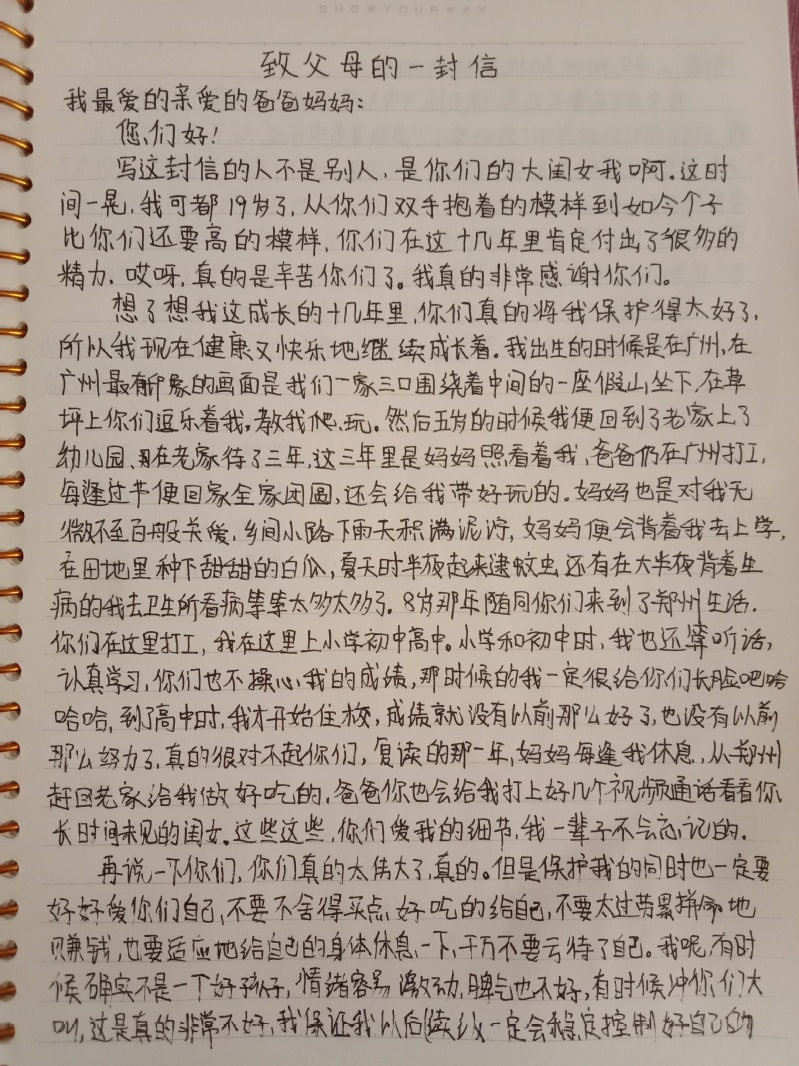 SHOWYOURWAY
致父母的一封信
我最爱的亲爱的爸爸妈妈：
您们好！
写这封信的人不是别人，是你们的大闺女我啊。这时
间一晃，我可都19岁了，从你们双手抱着的模样到如今个子
比你们还要高的模样，你们在这十几年里肯定付出了很多的
精力，哎呀，真的是辛苦你们了。我真的非常感谢你们。
想了想我这成长的十几年里，你们真的将我保护得太好了，
所以我现在健康又快乐地继续成长着。我出生的时候是在广州，在
广州最有印象的画面是我们一家三口围绕着中间的一座假山坐下，在草
坪上你们逗乐着我，教我爬、玩。然后五岁的时候我便回到了老家上了
幼儿园、在老家待了三年，这三年里是妈妈照看着我，爸爸仍在广州打工，
每逢过节便回家全家团圆，还会给我带好玩的。妈妈也是对我无
微不至百般关爱，乡间小路下雨天积满泥泞，妈妈便会背着我去上学，
在田地里种下甜甜的白瓜，夏天时半夜起来逮蚊虫，还有在大半夜背着生
病的我去卫生所看病等等太多太多了。8岁那年随同你们来到了郑州生活.
你们在这里打工，我在这里上小学初中高中。小学和初中时，我也还算听话，
认真学习，你们也不操心我的成绩，那时候的我一定很给你们长脸吧哈
哈哈，到了高中时，我才开始住校，成绩就没有以前那么好了，也没有以前
那么努力了，真的很对不起你们，复读的那一年，妈妈每逢我休息，从郑州
赶回老家给我做好吃的，爸爸你也会给我打上好几个视频通话看看你
长时间未见的闺女。这些这些，你们爱我的细节，我一辈子不会忘记的.
再说一下你们，你们真的太伟大了，真的。但是保护我的同时也一定要
好好爱你们自己，不要不舍得买点好吃的给自己，不要太过劳累拼命地
赚钱，也要适应地给自己的身体休息一下，千万不要亏待了自己。我呢，有时
候确实不是一个好孩子，情绪容易激动，脾气也不好，有时候冲你们大
叫，这是真的非常不好，我保证我以后一定会稳定控制好自己的